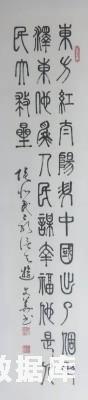 東方紅太陽升中國出了個毛
澤東他為人民謀幸福他是人
民大救星
数据库